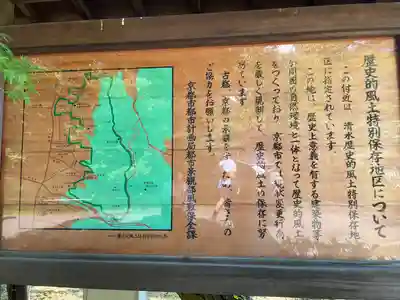 歴史的風土特別保存地区について
この付近は、清水歴史的風土特別保存地
区に指定されています。
この地は、歴史上意義を有する建築物等
が周囲の自然環境と一体となって歴史的風土
をつくっており、京都市では、現状変更行為
を厳しく規制して、歴史的風土の保存に努
めています。
古都・京都の景観を守るため、皆さんの
ご協力をお願いします。
京都市都市計画局都市景観部風致保全課